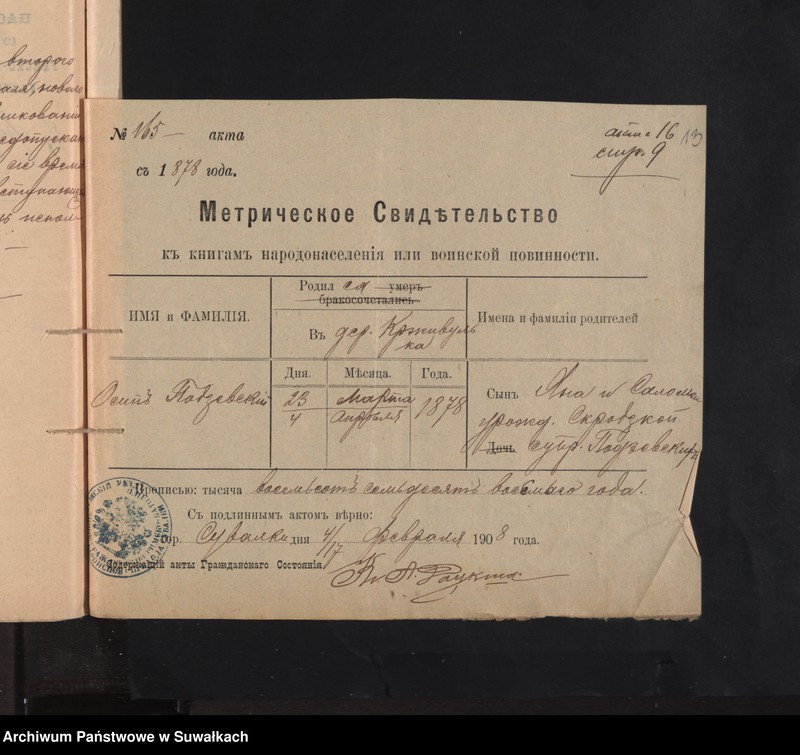 второго
№ 165 — акта
съ 1878 года.
акт. 16 13
стр. 9
Метрическое Свидѣтельство
къ книгамъ народонаселенія или воинской повинности.
ИМЯ и ФАМИЛІЯ.
Родился умеръ
бракосочетались
Въ дер. Крживуль
ка
Имена и фамиліи родителей
Дня. Мѣсяца. Года.
Осипъ Подзевскій
23 Марта 1878
4 Апрѣля
Сынъ Яна и Саломеи
урожд. Скродской
Дочь супр. Подзевскихъ
Прописью: тысяча восемьсотъ семьдесятъ восьмаго года.
Съ подлиннымъ актомъ вѣрно:
Гор. Сувалки дня 4/17 Февраля 1908 года.
Содержащій акты Гражданскаго Состоянія
Archiwum Państwowe w Suwałkach